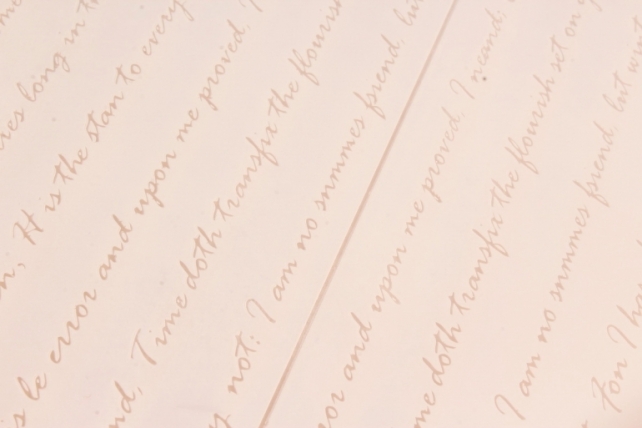 long in
It is the stan to every
be error and upon me proved.
Time doth transfix the flourish
not: I am no summes friend, but
and upon me proved. I
me doth transfix the flourish set on
I am no summes friend, but
For I